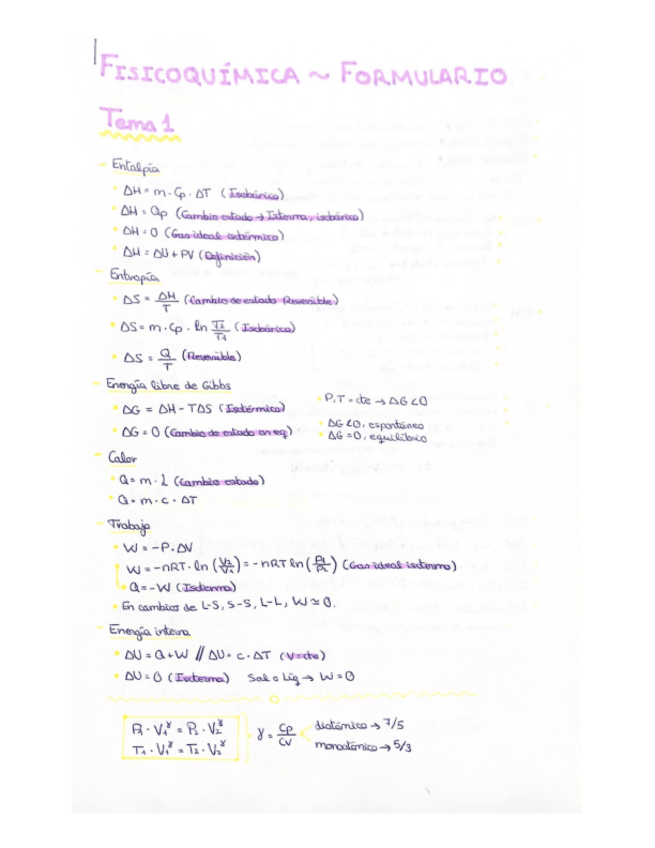 FISICOQUÍMICA ~ FORMULARIO
Tema 1
- Entalpía
• ΔH = m · Cp · ΔT (Isobárico)
• ΔH = Qp (Cambio estado → Isterma, isobárico)
• ΔH = 0 (Gas ideal isotérmico)
• ΔH = ΔU + PV (Definición)
- Entropía
• ΔS = ΔH/T (Cambio de estado Reversible)
• ΔS = m · Cp · ln T2/T1 (Isobárico)
• ΔS = Q/T (Reversible)
- Energía libre de Gibbs
• ΔG = ΔH - TΔS (Isotérmico)
• ΔG = 0 (Cambio de estado en eq)
• P, T = cte → ΔG < 0
• ΔG < 0, espontáneo
• ΔG = 0, equilibrio
- Calor
• Q = m · L (Cambio estado)
• Q = m · c · ΔT
- Trabajo
• W = -P · ΔV
W = -nRT · ln (V2/V1) = -nRT ln (P1/P2) (Gas ideal isotermo)
Q = -W (Isotermo)
• En cambios de L-S, S-S, L-L, W ≃ 0.
- Energía interna
• ΔU = Q + W // ΔU = c · ΔT (V = cte)
• ΔU = 0 (Isotermo) Sol o Liq → W = 0
P1 · V1^γ = P2 · V2^γ
T1 · V1^γ = T2 · V2^γ
γ = Cp/Cv
diatómico → 7/5
monoatómico → 5/3